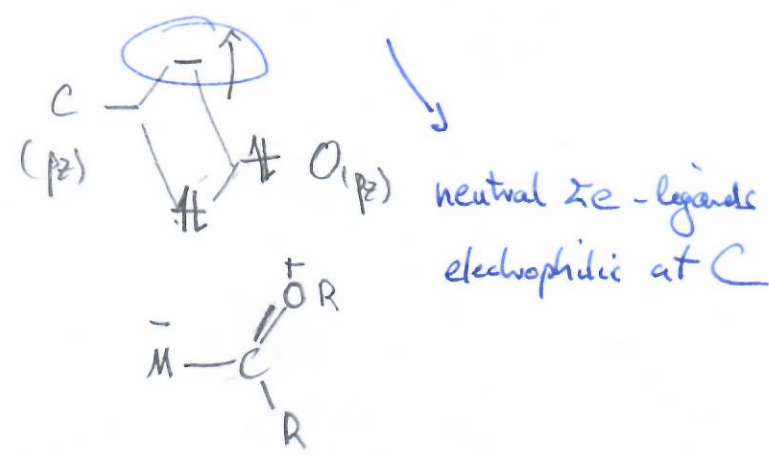 C
(pz)
O(pz)
neutral 2e-ligands
electrophilic at C
+
OR
−
M — C
R